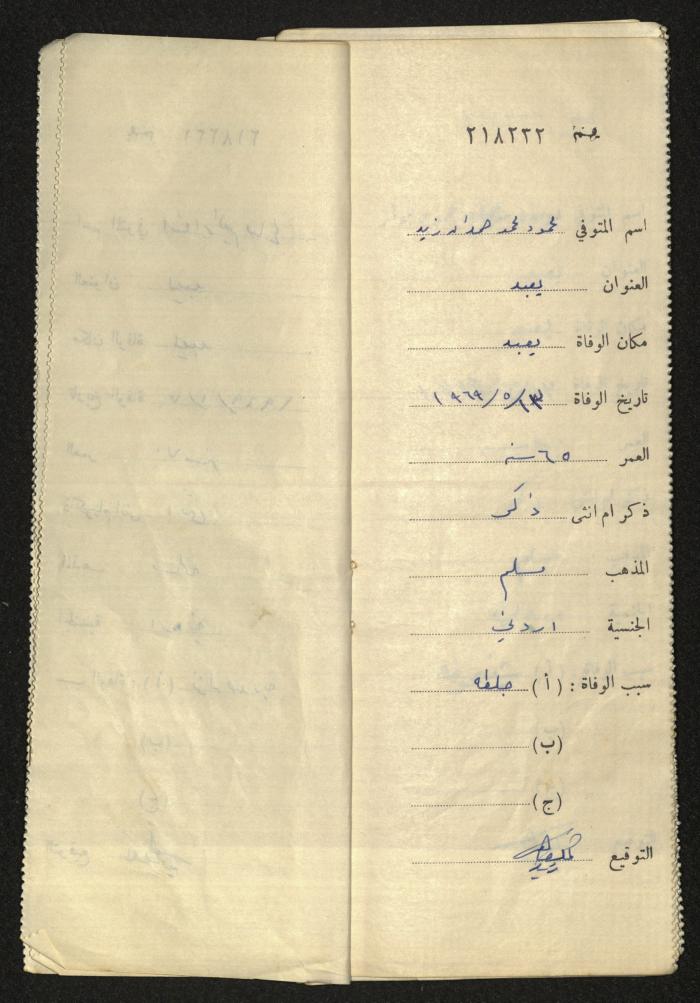 جنين ٢١٨٢٣٢
اسم المتوفي محمود محمد حمدالله زيد
العنوان يعبد
مكان الوفاة يعبد
تاريخ الوفاة ١٩٦٩/٥/١٣
العمر ٦٥ سنه
ذكر ام انثى ذكر
المذهب مسلم
الجنسية اردني
سبب الوفاة : (أ) جلطه
(ب)
(ج)
التوقيع